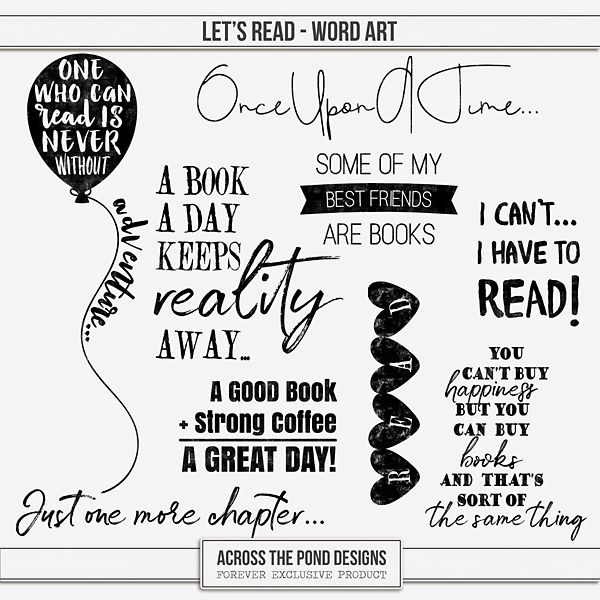 LET'S READ - WORD ART
ONE
WHO CAN
read IS
NEVER
WITHOUT
adventure...
Once Upon A Time...
A BOOK
A DAY
KEEPS
reality
AWAY...
SOME OF MY
BEST FRIENDS
ARE BOOKS
I CAN'T...
I HAVE TO
READ!
A GOOD BOOK
+ Strong Coffee
A GREAT DAY!
READ
YOU
CAN'T BUY
happiness
BUT YOU
CAN BUY
books
AND THAT'S
SORT OF
the same thing
Just one more chapter...
ACROSS THE POND DESIGNS
FOREVER EXCLUSIVE PRODUCT